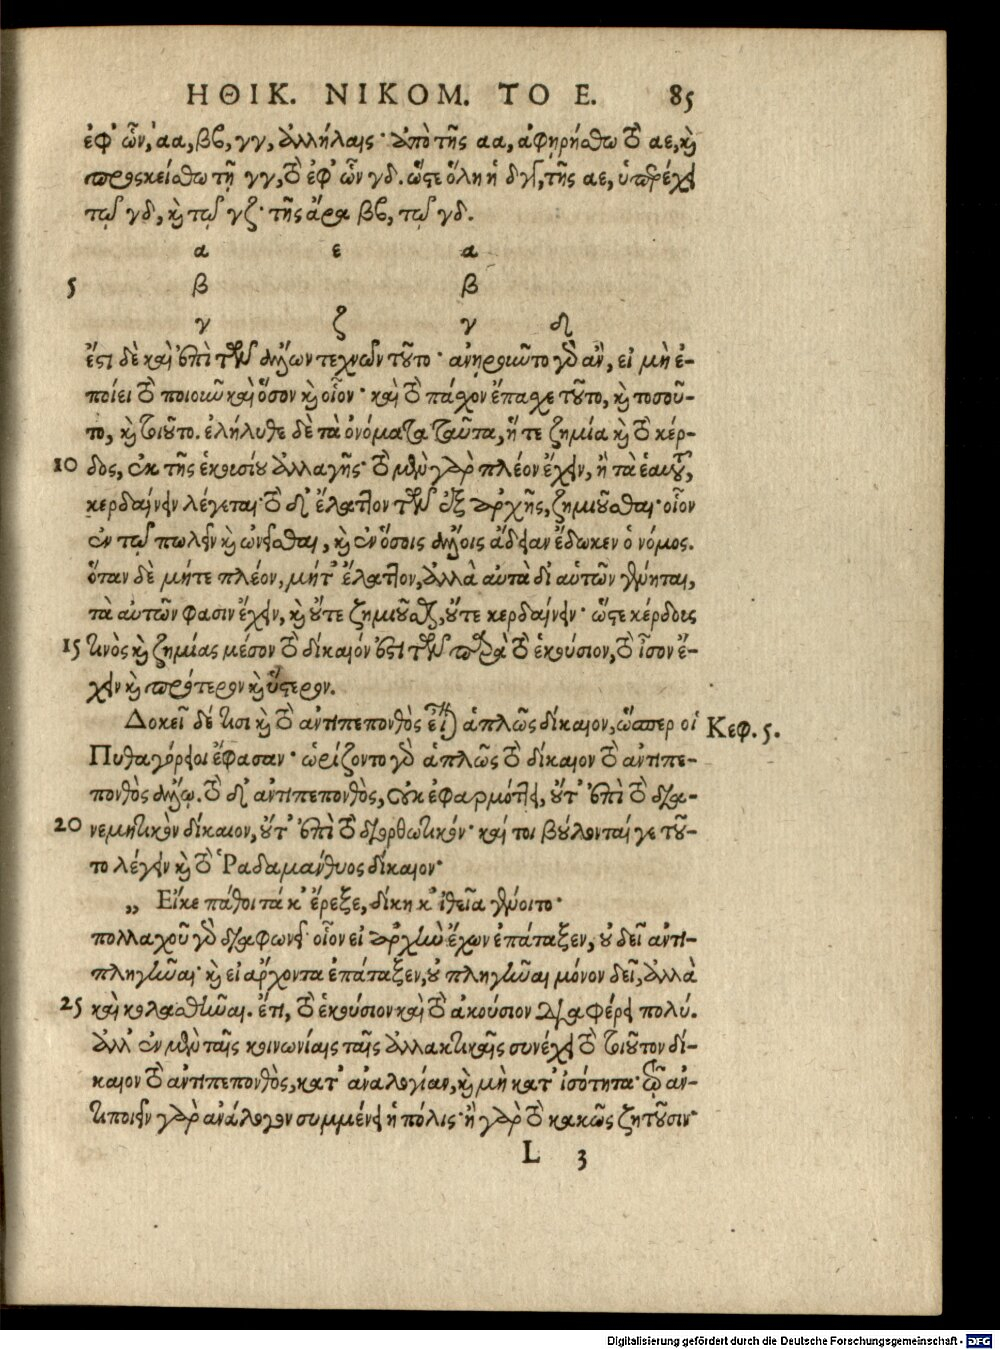 ΗΘΙΚ. ΝΙΚΟΜ. ΤΟ Ε. 85
ἐφ' ὧν, αα, ββ, γγ, ἀλλήλαις· ἀπὸ τῆς αα, ἀφῃρήσθω τὸ αε, καὶ
προσκείσθω τῇ γγ, τὸ ἐφ' ὧν γδ. ὥστε ὅλη ἡ δγζ, τῆς αε, ὑπερέχει
τῷ γδ, καὶ τῷ γζ· τῆς ἄρα ββ, τῷ γδ.
α ε α
5 β β
γ ζ γ δ
ἔστι δὲ καὶ ἐπὶ τῶν ἄλλων τεχνῶν τοῦτο· ἀνῃροῦντο γὰρ ἂν, εἰ μὴ ἐ-
ποίει τὸ ποιοῦν καὶ ὅσον καὶ οἷον· καὶ τὸ πάσχον ἔπασχε τοῦτο, καὶ τοσοῦ-
το, καὶ τοιοῦτο. ἐλήλυθε δὲ τὰ ὀνόματα ταῦτα, ἥ τε ζημία καὶ τὸ κέρ-
10 δος, ἐκ τῆς ἑκουσίου ἀλλαγῆς· τὸ μὲν γὰρ πλέον ἔχειν, ἢ τὰ ἑαυτοῦ,
κερδαίνειν λέγεται· τὸ δ' ἔλαττον τῶν ἐξ ἀρχῆς, ζημιοῦσθαι· οἷον
ἐν τῷ πωλεῖν καὶ ὠνεῖσθαι, καὶ ἐν ὅσοις ἄλλοις ἄδειαν ἔδωκεν ὁ νόμος.
ὅταν δὲ μήτε πλέον, μήτ' ἔλαττον, ἀλλὰ αὐτὰ δι αὑτῶν γένηται,
τὰ αὑτῶν φασιν ἔχειν, καὶ οὔτε ζημιοῦσθαι, οὔτε κερδαίνειν· ὥστε κέρδους
15 τινὸς καὶ ζημίας μέσον τὸ δίκαιόν ἐστι τῶν παρὰ τὸ ἑκούσιον, τὸ ἴσον ἔ-
χειν καὶ πρότερον καὶ ὕστερον.
Δοκεῖ δέ τισι καὶ τὸ ἀντιπεπονθὸς εἶναι ἁπλῶς δίκαιον, ὥσπερ οἱ Κεφ. 5.
Πυθαγόρειοι ἔφασαν· ὡρίζοντο γὰρ ἁπλῶς τὸ δίκαιον τὸ ἀντιπε-
πονθὸς ἄλλῳ. τὸ δ' ἀντιπεπονθὸς, οὐκ ἐφαρμόττει, οὔτ' ἐπὶ τὸ δια-
20 νεμητικὸν δίκαιον, οὔτ' ἐπὶ τὸ διορθωτικόν· καί τοι βούλονταί γε τοῦ-
το λέγειν καὶ τὸ Ῥαδαμάνθυος δίκαιον·
„ Εἴκε πάθοι τά κ' ἔρεξε, δίκη κ' ἰθεῖα γένοιτο·
πολλαχοῦ γὰρ διαφωνεῖ· οἷον εἰ ἀρχὴν ἔχων ἐπάταξεν, οὐ δεῖ ἀντι-
πληγῆναι· καὶ εἰ ἄρχοντα ἐπάταξεν, οὐ πληγῆναι μόνον δεῖ, ἀλλὰ
25 καὶ κολασθῆναι. ἔτι, τὸ ἑκούσιον καὶ τὸ ἀκούσιον διαφέρει πολύ.
ἀλλ' ἐν μὲν ταῖς κοινωνίαις ταῖς ἀλλακτικαῖς συνέχει τὸ τοιοῦτον δί-
καιον τὸ ἀντιπεπονθὸς, κατ' ἀναλογίαν, καὶ μὴ κατ' ἰσότητα· τῷ ἀν-
τιποιεῖν γὰρ ἀνάλογον συμμένει ἡ πόλις· ἢ γὰρ τὸ κακῶς ζητοῦσιν·
L 3
Digitalisierung gefördert durch die Deutsche Forschungsgemeinschaft - DFG